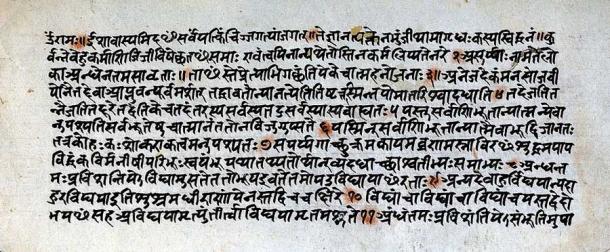 ॐ रामः॥ ईशावास्यमिदꣳ सर्वं यत्किंच जगत्यां जगत्॥ तेन त्यक्तेन भुंजीथा मा गृधः कस्य स्विद्धनं॥ कु
र्वन्नेवेह कर्माणि जिजीविषेछतꣳ समाः एवं त्वयि नान्यथेतोस्ति न कर्म लिप्यते नरे २ असूर्या नाम ते लो
का अंधेन तमसावृताः॥ ताꣳस्ते प्रेत्याभिगछंति ये के चात्महनो जनाः ३॥ अनेजदेकं मनसो जवी
यो नैनद्देवा आप्नुवन्पूर्वमर्शत् तद्धावतोन्यानत्येति तिष्ठत्तस्मिन्नपो मातरिश्वा दधाति ४ तदेजति त
न्नैजति तद्दूरे तद्वंतिके तदंतरस्य सर्वस्य तदु सर्वस्यास्य बाह्यतः ५ यस्तु सर्वाणि भूतान्यात्मन्येवा
नुपश्यति सर्वभूतेषु चात्मानं ततो न विजुगुप्सते ६ यस्मिन्सर्वाणि भूतान्यात्मैवाभूद्विजानतः
तत्र को मोहः कः शोक एकत्वमनुपश्यतः ७ स पर्यगाच्छुक्रमकायमव्रणमस्नाविरꣳ शुद्धमपाप
विद्धं कविर्मनीषी परिभूः स्वयंभूर्याथातथ्यतोर्थान्व्यदधाच्छाश्वतीभ्यः समाभ्यः ८ अंधंत
मः प्रविशंति येऽविद्यामुपासते ततो भूय इव ते तमो य उ विद्यायाꣳ रताः ९ अन्यदेवाहुर्विद्ययान्यदा
हुरविद्यया इति शुश्रुम धीराणां ये नस्तद्विचचक्षिरे १० विद्यां चाविद्यां च यस्तद्वेदो
भयꣳ सह अविद्यया मृत्युं तीर्त्वा विद्ययामृतमश्नुते ११ अंधंतमः प्रविशंति येसंभूतिमुपा